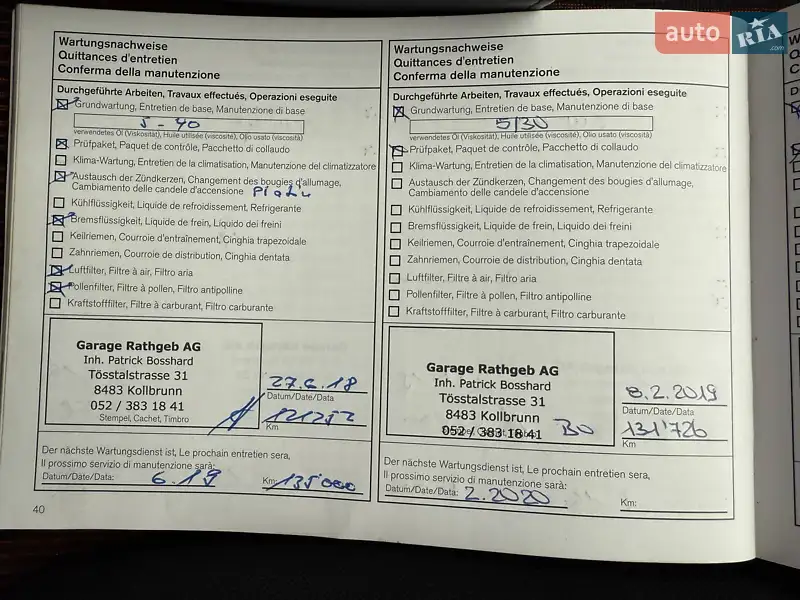 auto RIA.com
Wartungsnachweise
Quittances d'entretien
Conferma della manutenzione
Durchgeführte Arbeiten, Travaux effectués, Operazioni eseguite
Grundwartung, Entretien de base, Manutenzione di base
5-40
verwendetes Öl (Viskosität), Huile utilisée (viscosité), Olio usato (viscosità)
Prüfpaket, Paquet de contrôle, Pacchetto di collaudo
Klima-Wartung, Entretien de la climatisation, Manutenzione del climatizzatore
Austausch der Zündkerzen, Changement des bougies d'allumage,
Cambiamento delle candele d'accensione
Kühlflüssigkeit, Liquide de refroidissement, Refrigerante
Bremsflüssigkeit, Liquide de frein, Liquido dei freini
Keilriemen, Courroie d'entraînement, Cinghia trapezoidale
Zahnriemen, Courroie de distribution, Cinghia dentata
Luftfilter, Filtre à air, Filtro aria
Pollenfilter, Filtre à pollen, Filtro antipolline
Kraftstofffilter, Filtre à carburant, Filtro carburante
Garage Rathgeb AG
Inh. Patrick Bosshard
Tösstalstrasse 31
8483 Kollbrunn
052 / 383 18 41
Stempel, Cachet, Timbro
27.6.18
Datum/Date/Data
121252
Km
Der nächste Wartungsdienst ist, Le prochain entretien sera,
Il prossimo servizio di manutenzione sarà:
Datum/Date/Data: 6.19 Km: 135000
40
Wartungsnachweise
Quittances d'entretien
Conferma della manutenzione
Durchgeführte Arbeiten, Travaux effectués, Operazioni eseguite
Grundwartung, Entretien de base, Manutenzione di base
5/30
verwendetes Öl (Viskosität), Huile utilisée (viscosité), Olio usato (viscosità)
Prüfpaket, Paquet de contrôle, Pacchetto di collaudo
Klima-Wartung, Entretien de la climatisation, Manutenzione del climatizzatore
Austausch der Zündkerzen, Changement des bougies d'allumage,
Cambiamento delle candele d'accensione
Kühlflüssigkeit, Liquide de refroidissement, Refrigerante
Bremsflüssigkeit, Liquide de frein, Liquido dei freini
Keilriemen, Courroie d'entraînement, Cinghia trapezoidale
Zahnriemen, Courroie de distribution, Cinghia dentata
Luftfilter, Filtre à air, Filtro aria
Pollenfilter, Filtre à pollen, Filtro antipolline
Kraftstofffilter, Filtre à carburant, Filtro carburante
Garage Rathgeb AG
Inh. Patrick Bosshard
Tösstalstrasse 31
8483 Kollbrunn
052 / 383 18 41
BO
8.2.2019
Datum/Date/Data
131'726
Km
Der nächste Wartungsdienst ist, Le prochain entretien sera,
Il prossimo servizio di manutenzione sarà:
Datum/Date/Data: 2.2020 Km: